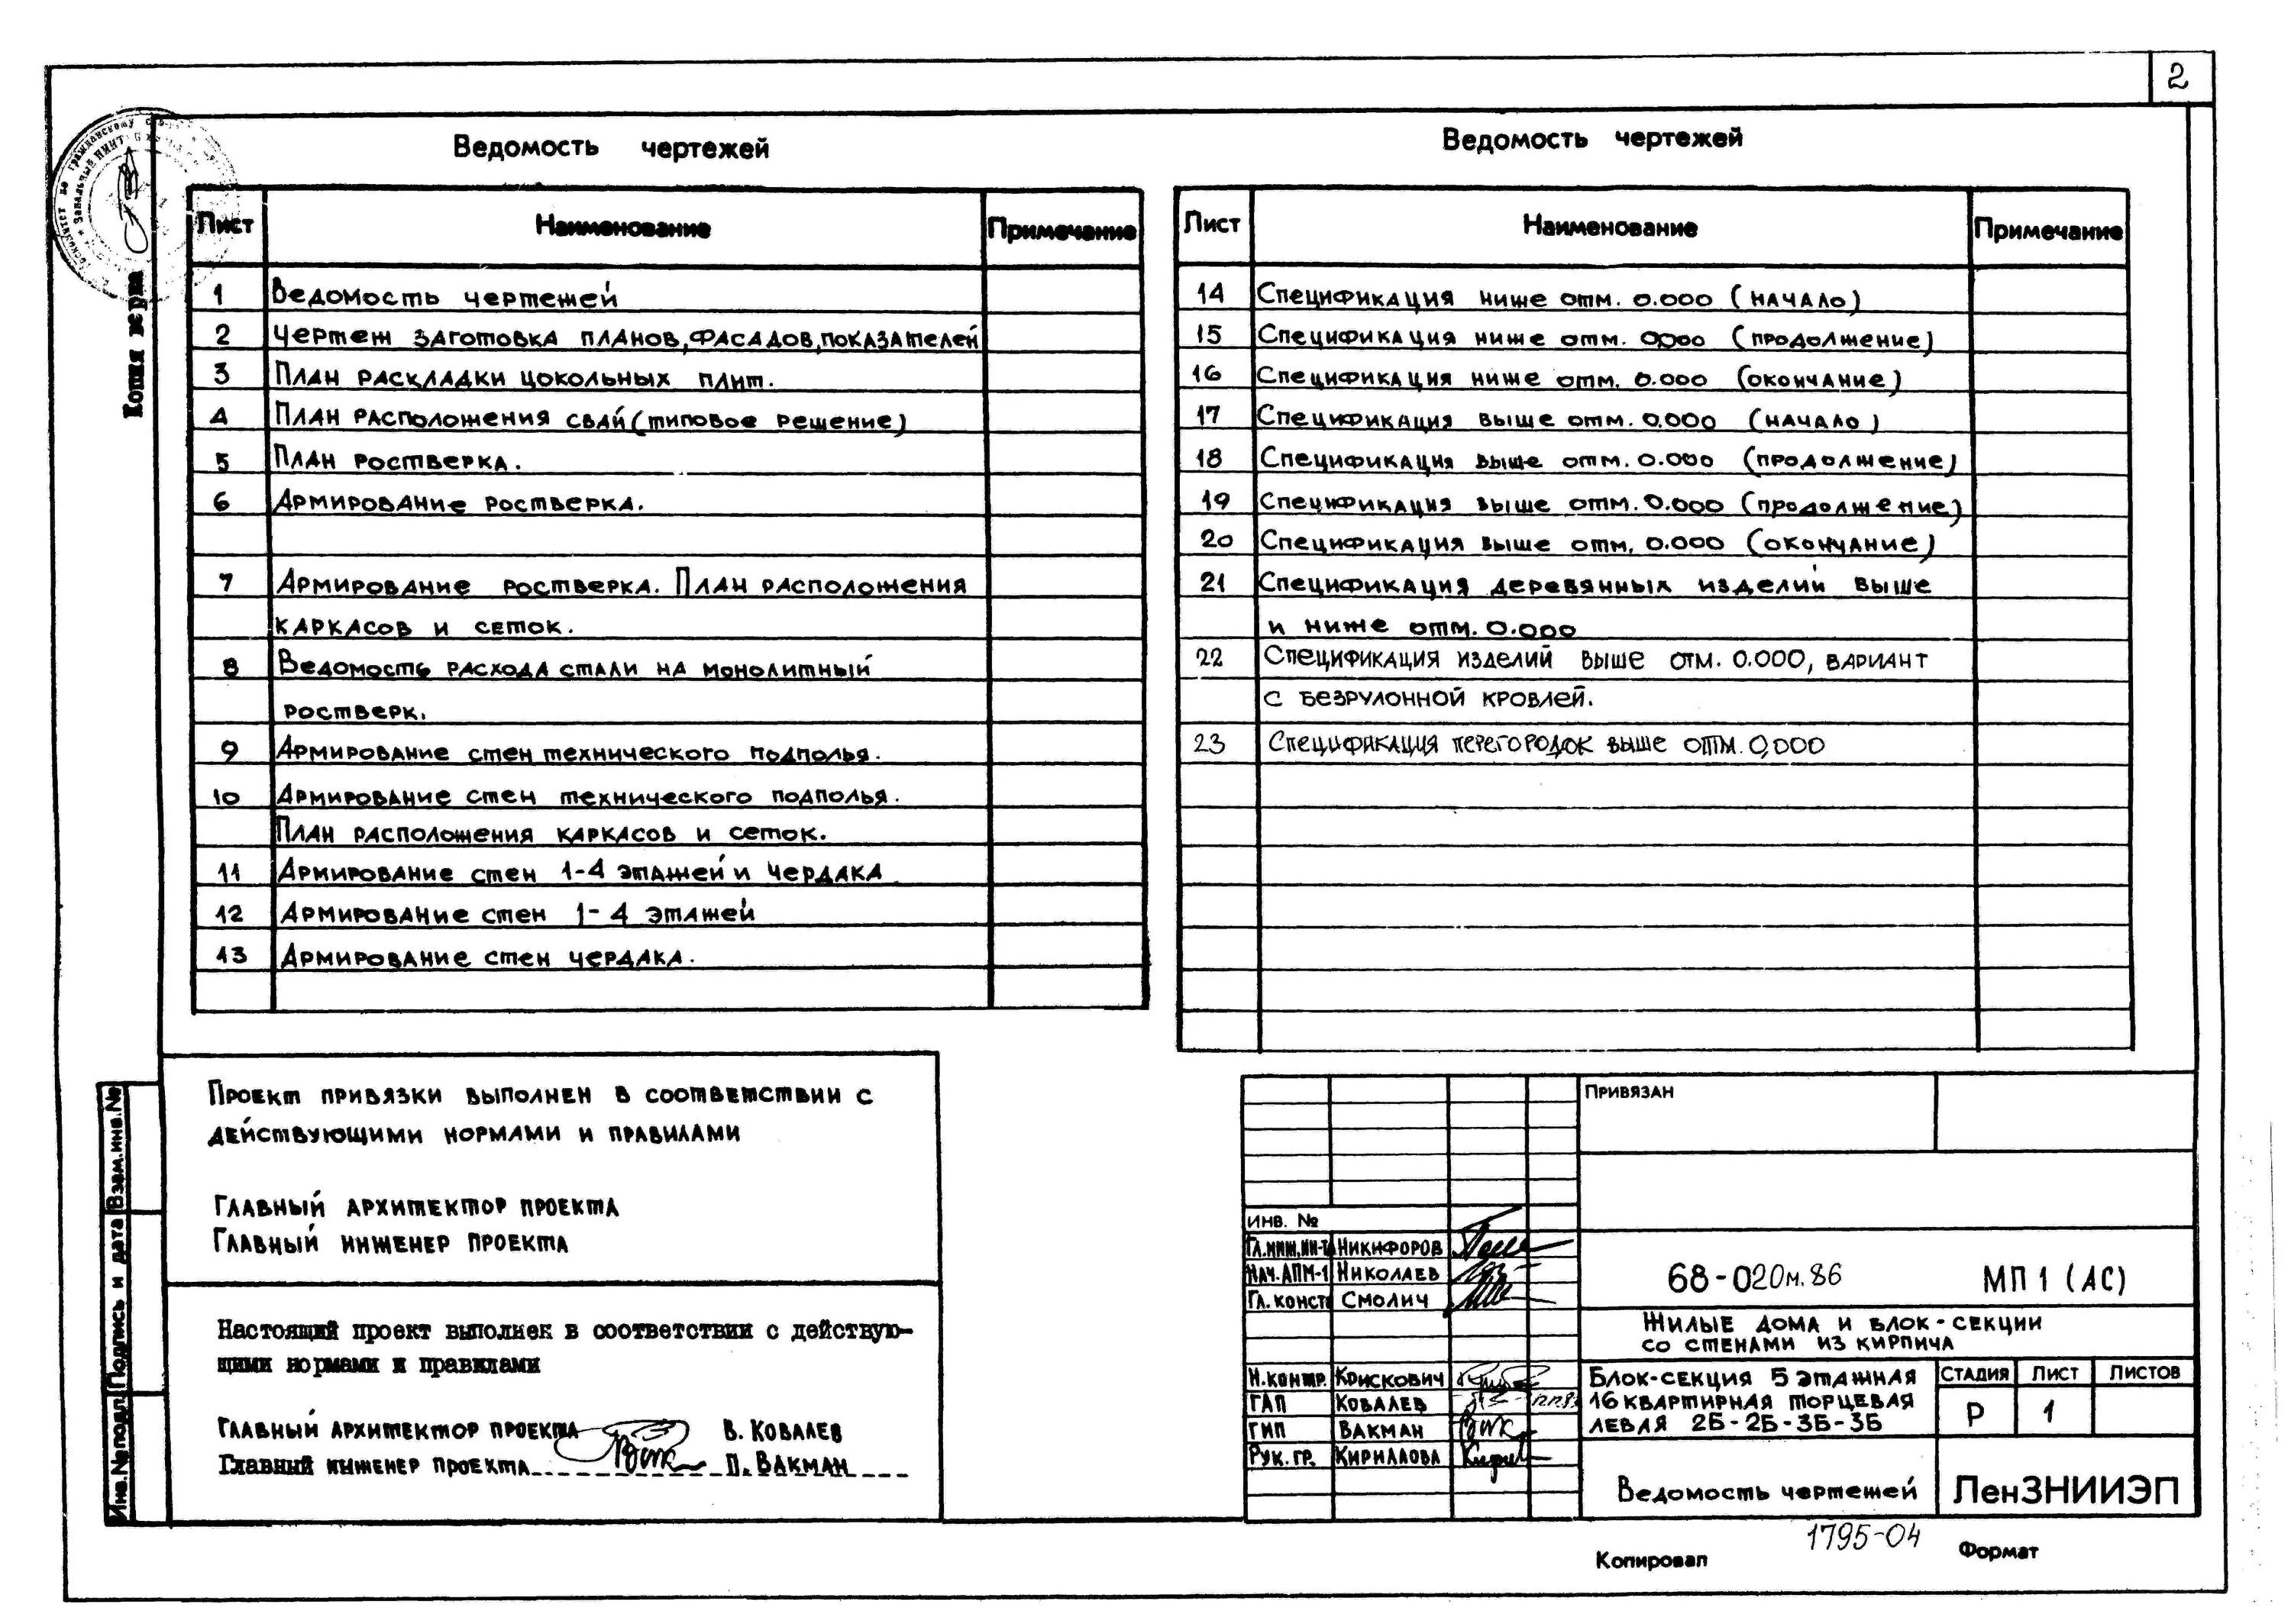 2
Ведомость чертежей
Лист Наименование Примечание
1 Ведомость чертежей
2 Чертеж заготовка планов, фасадов, показателей
3 План раскладки цокольных плит.
4 План расположения свай (типовое решение)
5 План ростверка.
6 Армирование ростверка.
7 Армирование ростверка. План расположения
каркасов и сеток.
8 Ведомость расхода стали на монолитный
ростверк.
9 Армирование стен технического подполья.
10 Армирование стен технического подполья.
План расположения каркасов и сеток.
11 Армирование стен 1-4 этажей и чердака
12 Армирование стен 1-4 этажей
13 Армирование стен чердака.
Ведомость чертежей
Лист Наименование Примечание
14 Спецификация ниже отм. 0.000 (начало)
15 Спецификация ниже отм. 0,000 (продолжение)
16 Спецификация ниже отм. 0.000 (окончание)
17 Спецификация выше отм. 0.000 (начало)
18 Спецификация выше отм. 0.000 (продолжение)
19 Спецификация выше отм. 0.000 (продолжение)
20 Спецификация выше отм. 0.000 (окончание)
21 Спецификация деревянных изделий выше
и ниже отм. 0.000
22 Спецификация изделий выше отм. 0.000, вариант
с безрулонной кровлей.
23 Спецификация перегородок выше отм. 0,000
Копия верна
Проект привязки выполнен в соответствии с
действующими нормами и правилами
Главный архитектор проекта
Главный инженер проекта
Настоящий проект выполнен в соответствии с действую-
щими нормами и правилами
Главный архитектор проекта В. Ковалев
Главный инженер проекта П. Вакман
Инв.№подл. Подпись и дата Взам.инв.№
Привязан
Инв. №
Гл.инж.ин-та Никифоров
Нач.АПМ-1 Николаев
Гл. констр Смолич
Н.контр. Крискович
ГАП Ковалев
ГИП Вакман
Рук. гр. Кириллова
68-020м.86 МП 1 (АС)
Жилые дома и блок-секции
со стенами из кирпича
Блок-секция 5 этажная
16 квартирная торцевая
левая 2Б-2Б-3Б-3Б
Стадия Лист Листов
Р 1
Ведомость чертежей
ЛенЗНИИЭП
1795-04
Копировал Формат